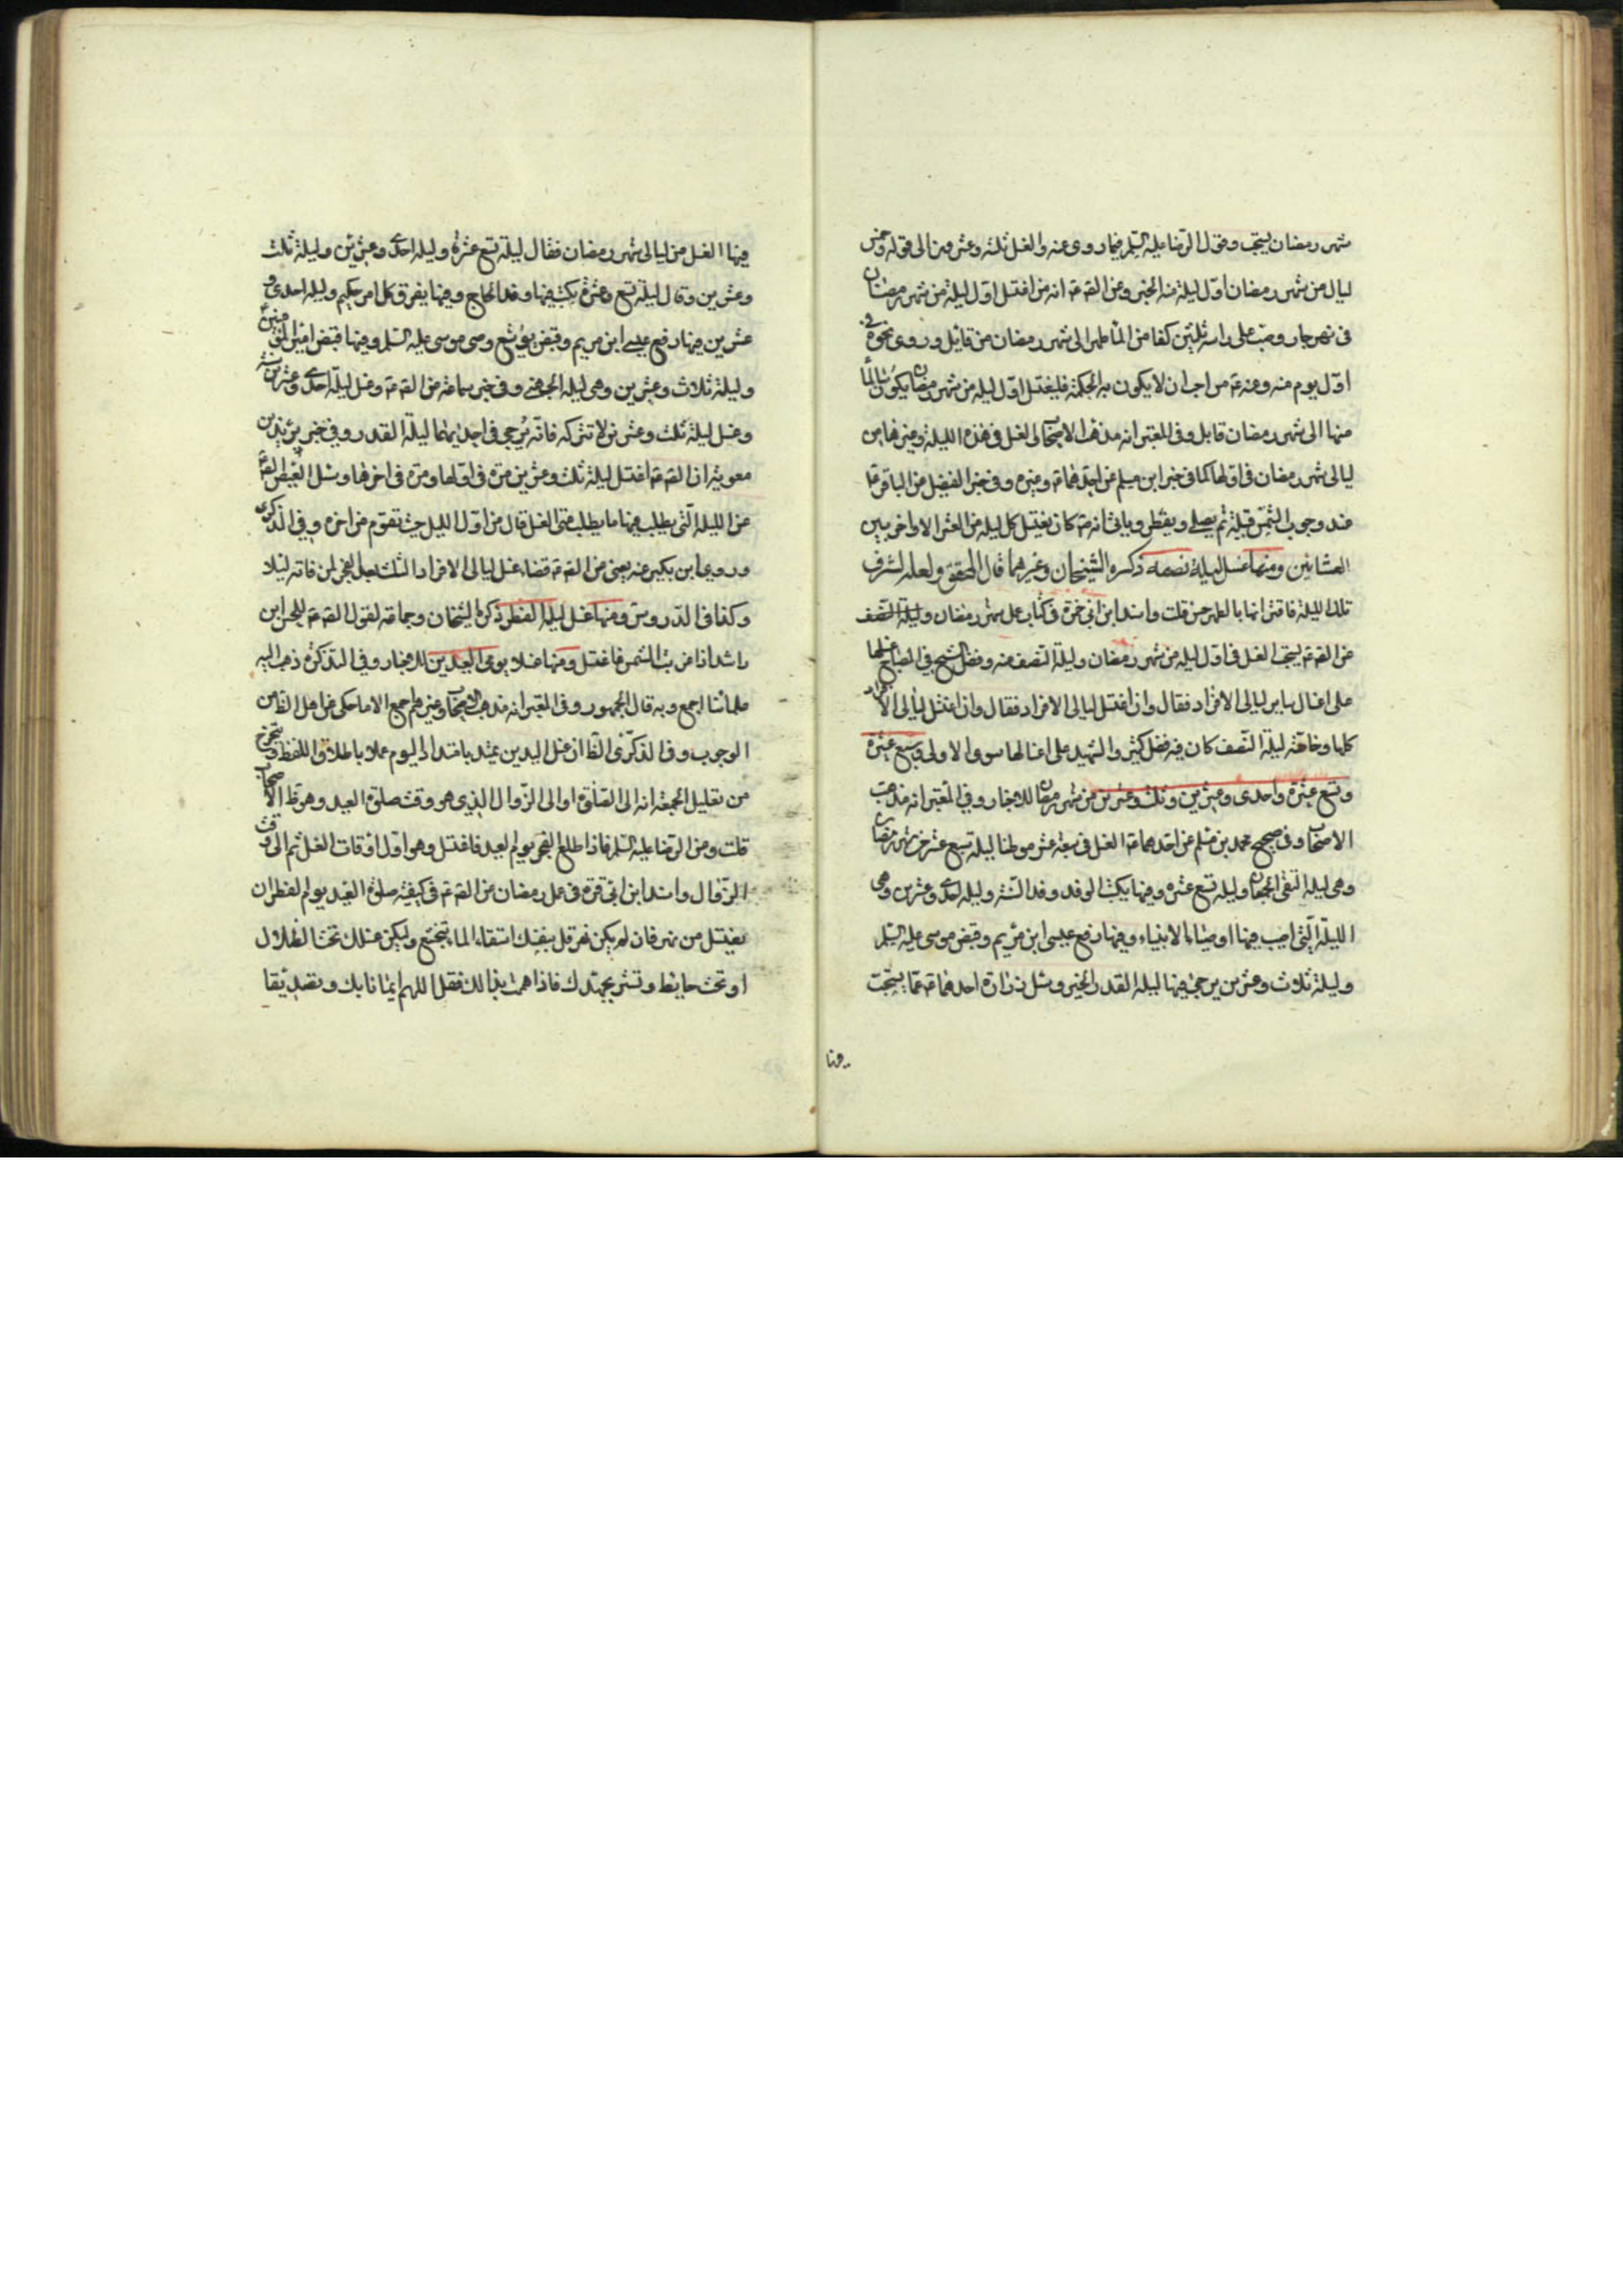 شهر رمضان يستحب وقول الرضا عليه السلم فيما روى عنه والغسل ثلثة وعشرون الى قوله وخمس
ليال من شهر رمضان اول ليلة منه الخبر وعن الصه عه انه من اغتسل اول ليلة من شهر رمضان
فى نهر جار وصب على راسه ثلثين كفا من الماء طهر الى شهر رمضان من قابل وروى نحوه فى
اول يوم منه وعنه عه من احب ان لا يكون به الحكة فليغتسل اول ليلة من شهر رمضان يكون سالما
منها الى شهر رمضان قابل وفى المعتبر انه مذهب الاصحاب الغسل فى هذه الليلة وغيرها من
ليالى شهر رمضان فى اولها كما فى خبر ابن مسلم عن احدهما عه وغيره وفى خبر الفضيل عن الباقر عه
عند وجوب الشمس قبيله ثم يصلى ويفطر وياتى انه عه كان يغتسل كل ليلة من العشر الاواخر بين
العشائين ومنها غسل ليلة نصفه ذكره الشيخان وغيرهما قال المحقق ولعله لشرف
تلك الليلة فاقترانها بالطهر حسن قلت واسند ابن ابى قرة فى كتاب عمل شهر رمضان وليلة النصف
عن الصه عه يستحب الغسل فى اول ليلة من شهر رمضان وليلة النصف منه وفضل الشيخ فى المصباح غسلها
على اغسال ساير ليالى الافراد فقال وان اغتسل ليالى الافراد فقال وان اغتسل ليالى الافراد
كلها وخاصة ليلة النصف كان فيه فضل كثير والشهيد على اغسالها سوى الاولى وسبع عشرة
وتسع عشرة واحدى وعشرين وثلث وعشرين من شهر رمضان للاخبار وفى المعتبر انه مذهب
الاصحاب وفى صحيح محمد بن مسلم عن احدهما عه الغسل فى سبعة عشر موطنا ليلة سبع عشر من شهر رمضان
وهى ليلة التقى الجمعان وليلة تسع عشرة وفيها يكتب الوفد وفد السنة وليلة احدى وعشرين وهى
الليلة التى اصيب فيها اوصياء الانبياء وفيها رفع عيسى ابن مريم وقبض موسى عليه السلم
وليلة ثلاث وعشرين يرجى فيها ليلة القدر الخبر وسئل زرارة احدهما عه عما يستحب
فيها
فيها الغسل من ليالى شهر رمضان فقال ليلة تسع عشرة وليلة احدى وعشرين وليلة ثلث
وعشرين وقال ليلة تسع وعشرة يكتب فيها وفد الحاج وفيها يفرق كل امر حكيم وليلة احدى و
عشرين فيها رفع عيسى ابن مريم وقبض يوشع وصى موسى عليه السلم وفيها قبض امير المؤمنين
وليلة ثلاث وعشرين وهى ليلة الجهنى وفى خبر سماعة عن الصه عه وغسل ليلة احدى وعشرين سنة
وغسل ليلة ثلث وعشرين لا تتركه فانه يرجى فى احديهما ليلة القدر وفى خبر بريد بن
معوية ان الصه عه اغتسل ليلة ثلث وعشرين مرة فى اولها ومرة فى اخرها وسئل العيص الصه عه
عن الليلة التى يطلب فيها ما يطلب متى الغسل قال من اول الليل حيث تقوم من اخره وفى الذكرى
وروى ابن بكير عنه يعنى عن الصه عه قضاء غسل ليالى الافراد الثلث بعد الفجر لمن فاته ليلا
وكذا فى الدروس ومنها غسل ليلة الفطر ذكره الشيخان وجماعة لقول الصه عه للحسن ابن
راشد اذا غربت الشمس فاغتسل ومنها غسلا يومى العيدين للاخبار وفى التذكرة ذهب اليه
علماءنا اجمع وبه قال الجمهور وفى المعتبر انه مذهب الاصحاب وغيرهم اجمع الا ما حكى عن اهل الظاهر من
الوجوب وفى الذكرى الظا ان غسل العيدين يمتد بامتداد اليوم عملا باطلاق اللفظ ويتخرج
من تعليل الجمعة انه الى الصلوة او الى الزوال الذى هو وقت صلوة العيد وهو ظ الاصحاب
قلت وعن الرضا عليه السلم فاذا طلع الفجر يوم العيد فاغتسل وهو اول اوقات الغسل ثم الى وقت
الزوال واسند ابن ابى قرة فى عمل رمضان عن الصه عه فى كيفية صلوة العيد يوم الفطر ان
يغتسل من نهر فان لم يكن نهر قل بنفسك استقاء الماء بتخشع وليكن غسلك تحت الظلال
او تحت حايط وتستر بجهدك فاذا هممت بذلك فقل اللهم ايمانا بك وتصديقا